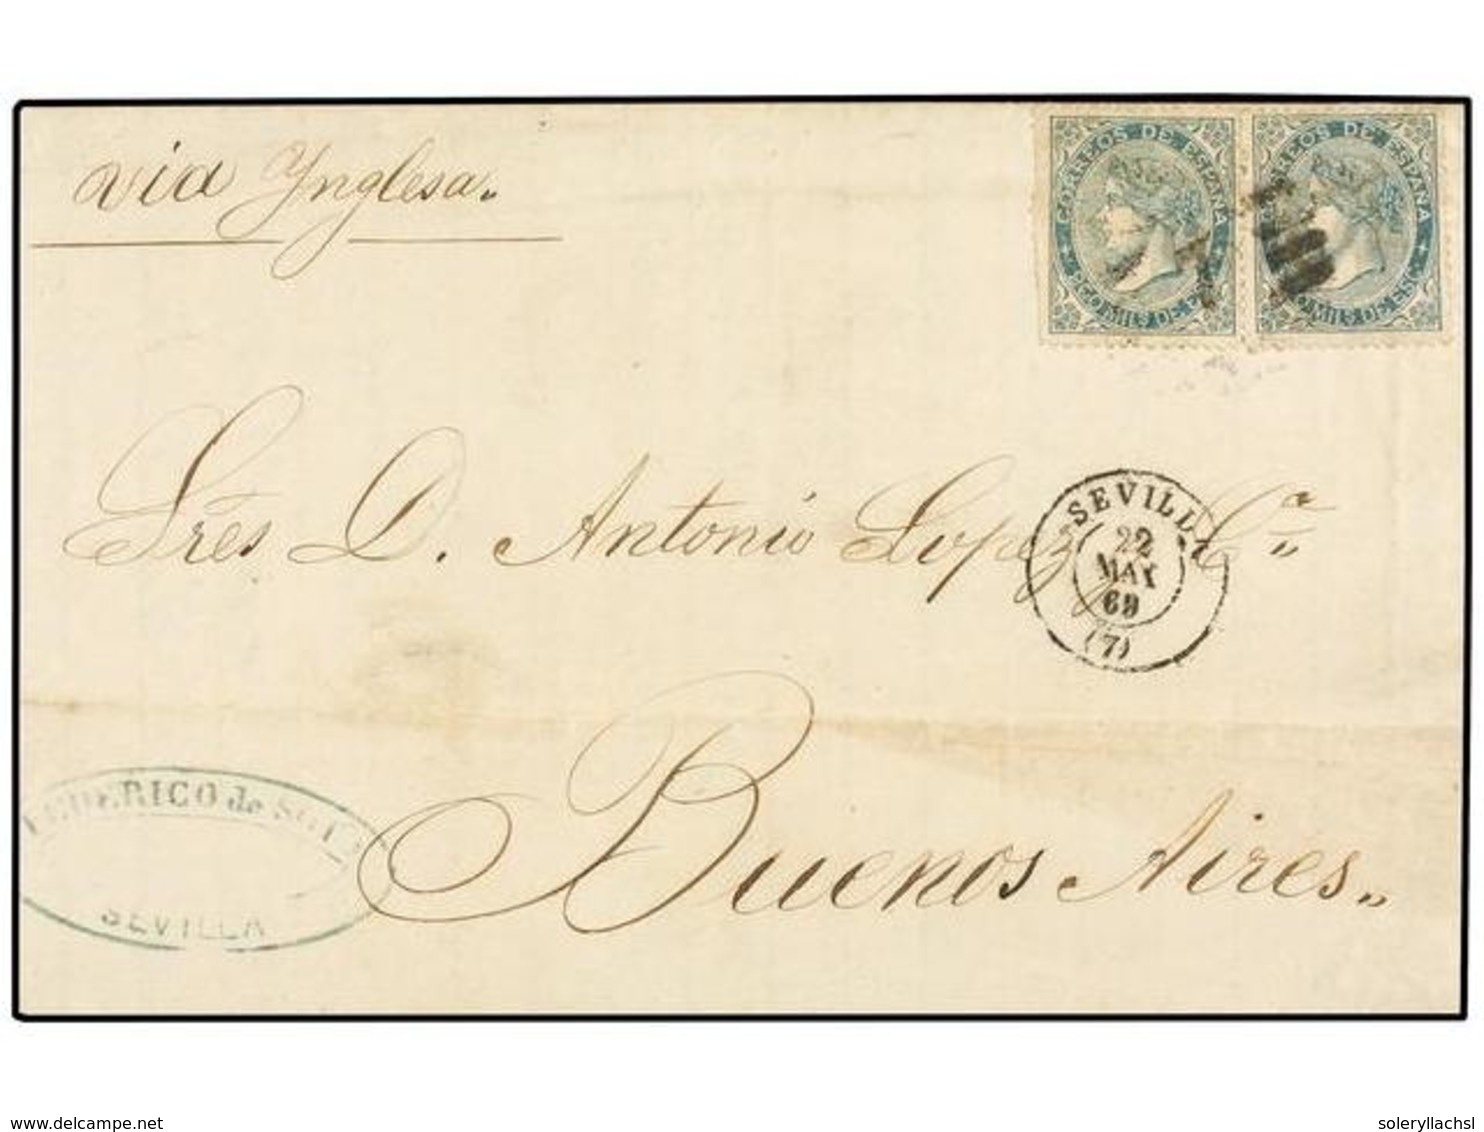 via Ynglesa.
CORREOS DE ESPAÑA
MILS DE
CORREOS DE ESPAÑA
MILS DE ESC
Sres D. Antonio Lopez y Ca
SEVILLA
22
MAY
69
(7)
Buenos Aires
FEDERICO de SOTO
SEVILLA
www.delcampe.net
soleryllachsl